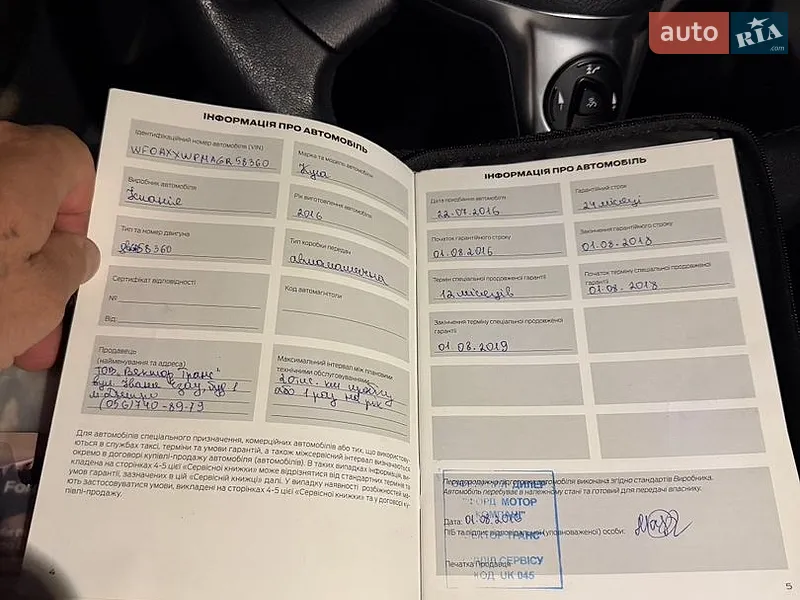 auto RIA.com
ІНФОРМАЦІЯ ПРО АВТОМОБІЛЬ
Ідентифікаційний номер автомобіля (VIN)
WF0AXXWPMAGR58360
Марка та модель автомобіля
Куга
Виробник автомобіля
Іспанія
Рік виготовлення автомобіля
2016
Тип та номер двигуна
58360
Тип коробки передач
автоматична
Сертифікат відповідності
№
Від
Код автомагнітоли
Продавець
(найменування та адреса)
ТОВ "Вектор Транс"
вул.
м. Дніпро
(056) 740-89-79
Максимальний інтервал між плановими
технічними обслуговуваннями
20 тис. км пробігу
або 1 раз на рік
Для автомобілів спеціального призначення, комерційних автомобілів або тих, що використову-
ються в службах таксі, терміни та умови гарантій, а також міжсервісний інтервал визначаються
окремо в договорі купівлі-продажу автомобіля (автомобілів). В таких випадках інформація, ви-
кладена на сторінках 4-5 цієї «Сервісної книжки» може відрізнятися від стандартних термінів та
умов гарантії, зазначених в цій «Сервісній книжці» далі. У випадку наявності розбіжностей ма-
ють застосовуватися умови, викладені на сторінках 4-5 цієї «Сервісної книжки» та у договорі ку-
півлі-продажу.
4
ІНФОРМАЦІЯ ПРО АВТОМОБІЛЬ
Дата придбання автомобіля
22.07.2016
Гарантійний строк
24 місяці
Початок гарантійного строку
01.08.2016
Закінчення гарантійного строку
01.08.2018
Термін спеціальної продовженої гарантії
12 місяців
Початок терміну спеціальної продовженої
гарантії
01.08.2018
Закінчення терміну спеціальної продовженої
гарантії
01.08.2019
Передпродажна підготовка автомобіля виконана згідно стандартів Виробника.
Автомобіль перебуває в належному стані та готовий для передачі власнику.
Дата: 01.08.2016
ПІБ та підпис відповідальної (уповноваженої) особи:
Печатка Продавця
ДИЛЕР
ФОРД МОТОР
КОМПАНІ
ВЕКТОР ТРАНС
ВІДДІЛ СЕРВІСУ
КОД UK 045
5